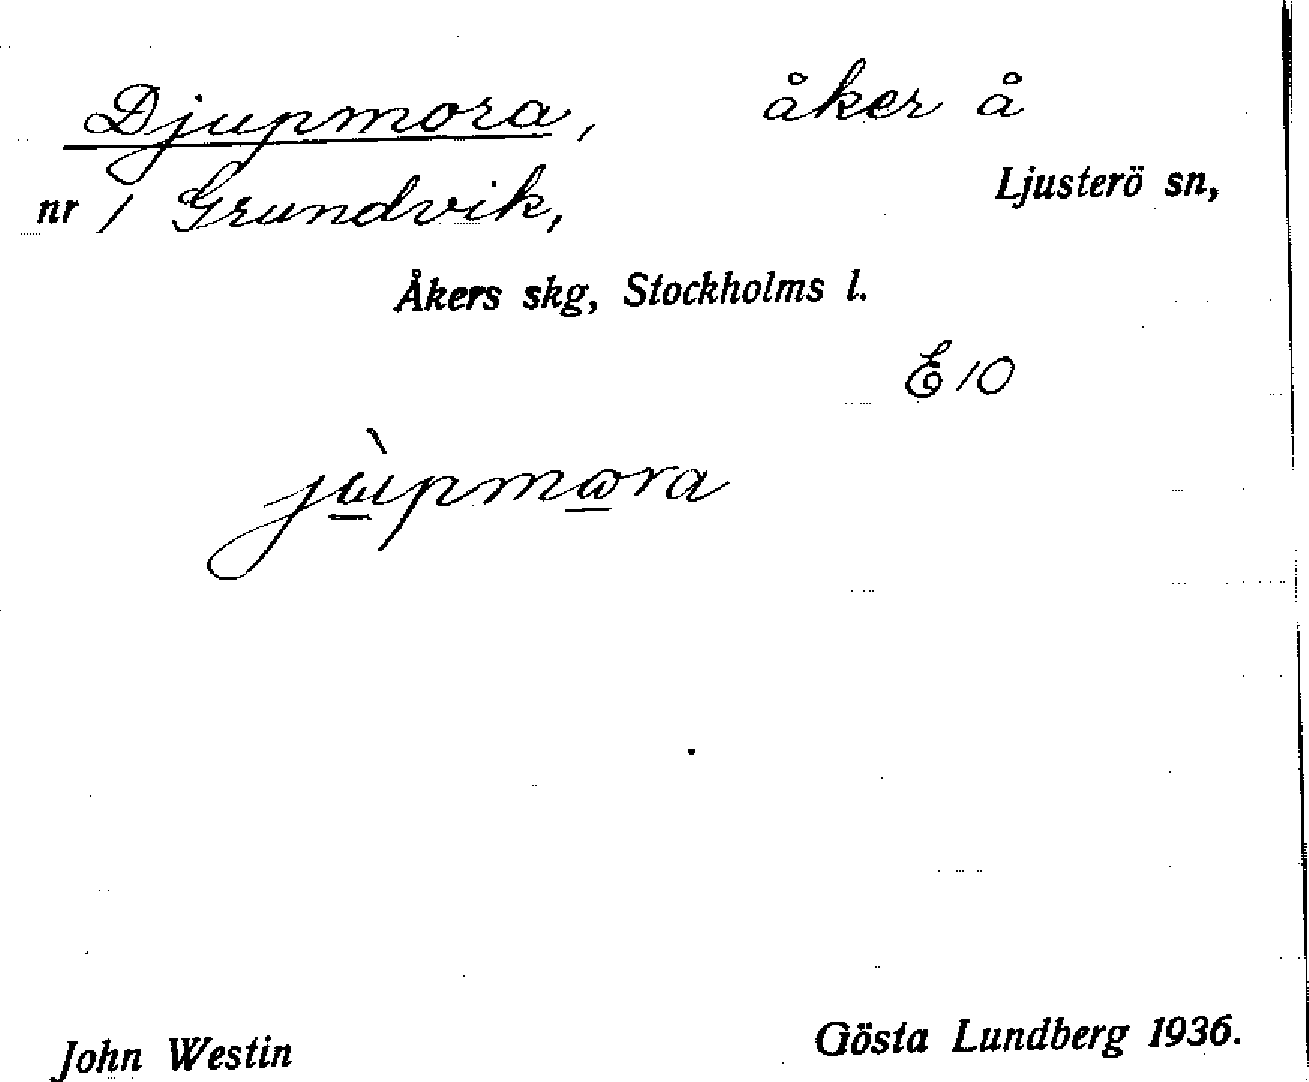 Djupmora, åker å
nr 1 Grundvik, Ljusterö sn,
Åkers skg, Stockholms l.
E 10
John Westin Gösta Lundberg 1936.